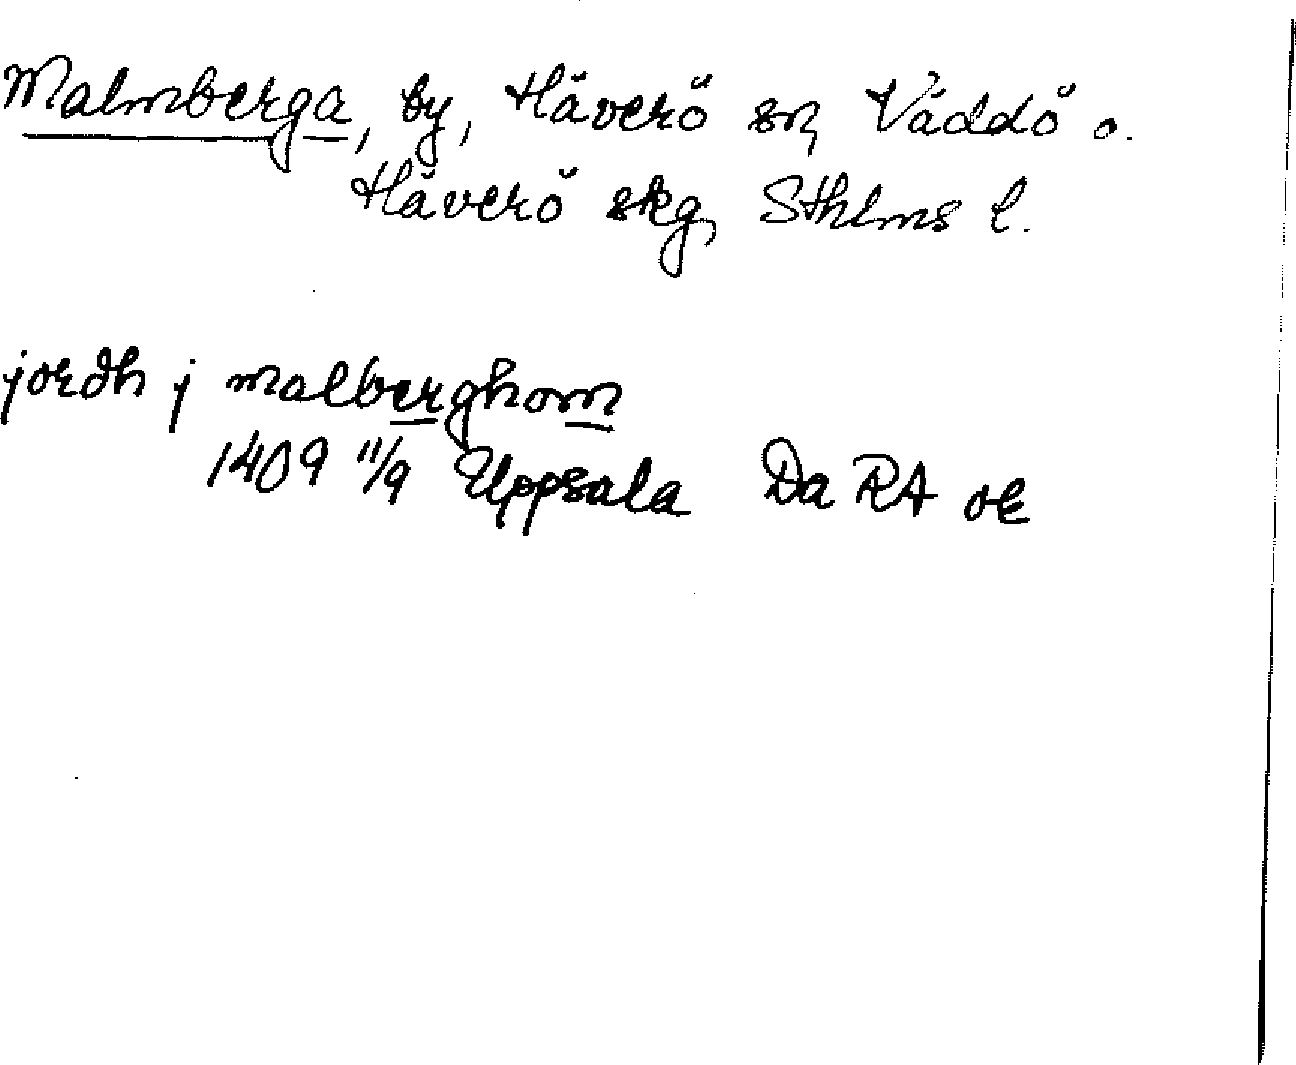 Malmberga, by, Häverö sn, Väddö o.
Häverö skg, Sthlms l.
jordh j malberghom
1409 11/9 Uppsala Da RA or